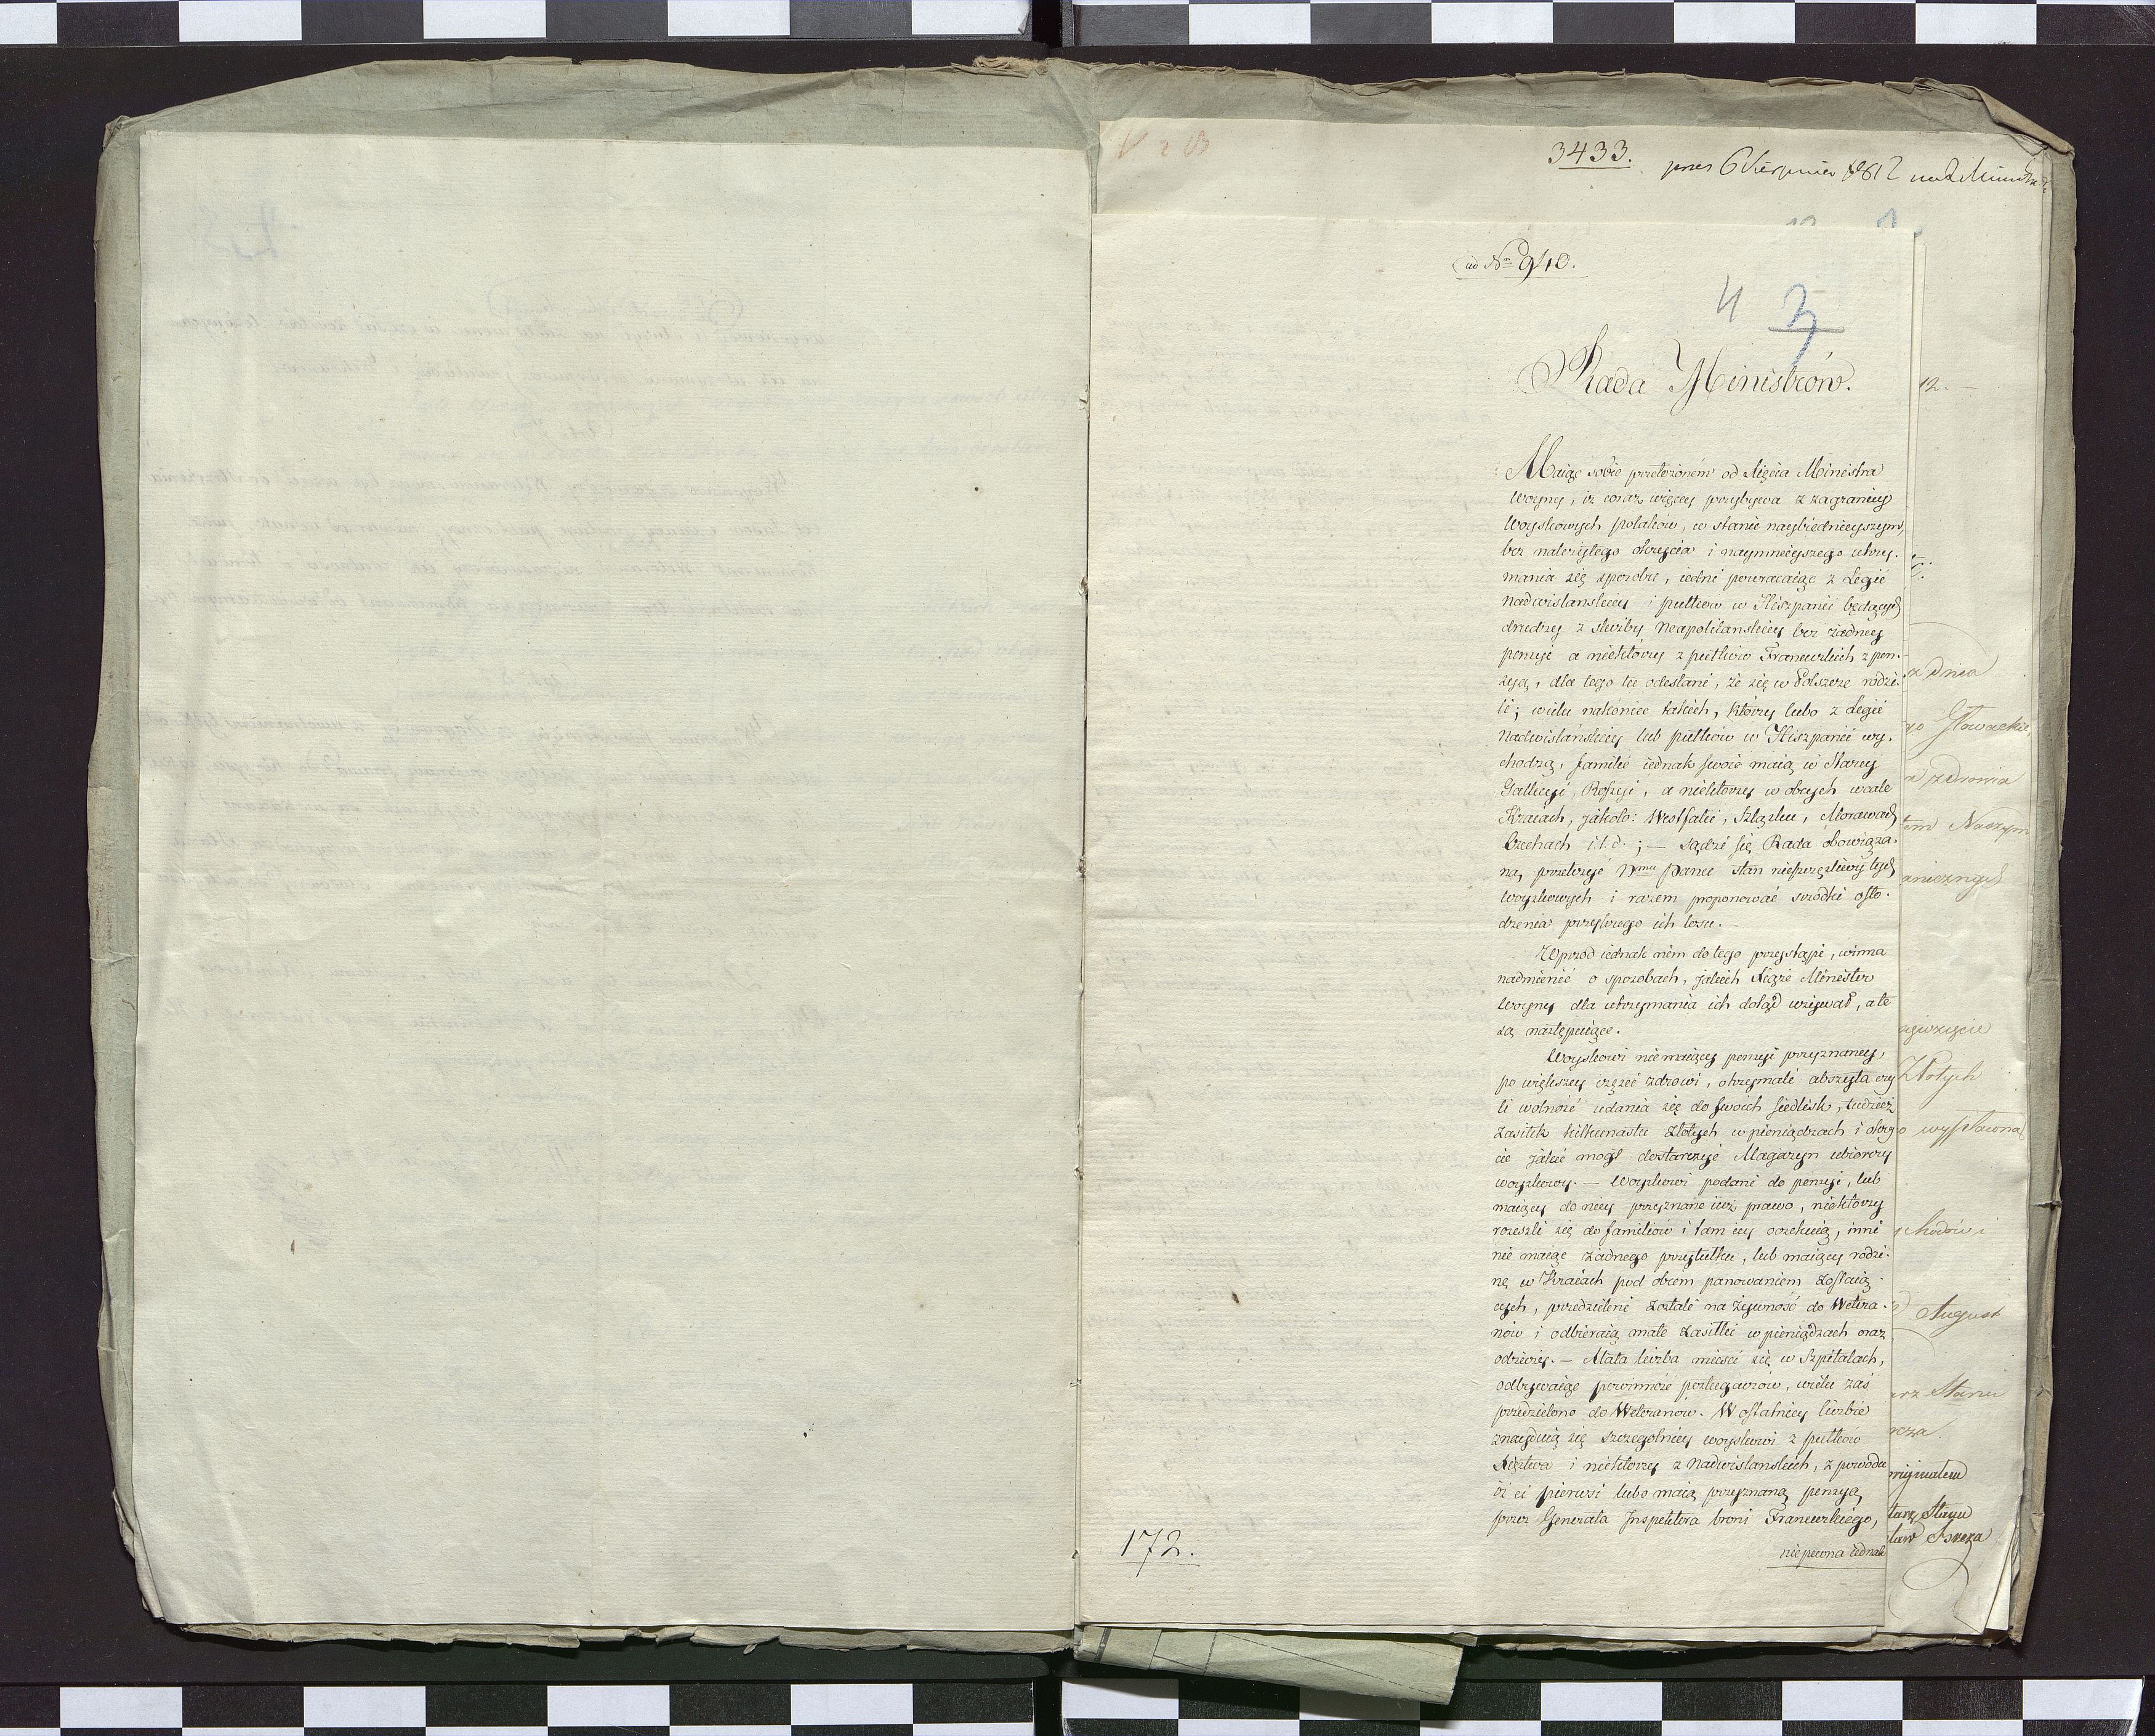 3433.
ad No 940.
4 3
Rada Ministrów.
Maiąc sobie przełożoném od Xięcia Ministra
Woyny, iż coraz więcey przybywa z zagranicy
Woyskowych polaków, w stanie naybiednieyszym,
bez należytego okrycia i naymnieyszego utrzy-
mania się sposobu, iedni powracaiąc z Legii
Nadwislanskiey i pułków w Hiszpanii będących
drudzy z służby Neapolitanskiey bez żadney
pensyi a niektorzy z pułków Francuzkich z pen-
syą, dla tego tu odesłani, że się w Polszcze rodzi-
li; wielu nakoniec takich, ktorzy lubo z Legii
Nadwislańskiey lub pułków w Hiszpanii wy-
chodzą, familie iednak swoie maią w Starey
Gallicyi, Rossyi, a niektorzy w obcych wcale
Kraiach, jakoto: Westfalii, Szląsku, Morawach
Czechach i t. d.; — sądzi się Rada obowiąza-
ną, przełożyć Nmu Panu stan nieszczęśliwy tych
Woyskowych i razem proponować srodki osło-
dzenia przykrego ich losu. —
Wprzod iednak nim do tego przystąpi, winna
nadmienić o sposobach, jakich Xiąże Minister
Woyny dla utrzymania ich dotąd używał, a te
są następuiące.
Woyskowi nie maiący pensyi przyznaney,
po większey części zdrowi, otrzymali abszyta czy-
li wolność udania się do swoich siedlisk, tudzież
zasiłek kilkunastu złotych w pieniądzach i okry-
cie jakie mogł dostarczyć Magazyn ubiorczy
woyskowy. — Woyskowi podani do pensyi, lub
maiący do niey przyznane iuż prawo, niektorzy
rozeszli się do familiów i tam iey oczekuią, inni
nie maiąc żadnego przytułku, lub maiący rodzi-
nę w Kraiach pod obcém panowaniem zostaią-
cych, przedzieleni zostali na żywność do Wetera-
nów i odbieraią małe zasiłki w pieniądzach oraz
odzieży. — Mała liczba mieści się w Szpitalach,
odbywaiąc powinność posługaczów, wielu zaś
przedzielono do Weteranów. W ostatniey liczbie
znayduią się szczegolniey woyskowi z pułków
Xięstwa i niektorzy z Nadwislanskich, z powodu
iż ci pierwsi lubo maią przyznaną pensyą
przez Generała Inspektora broni Francuzkiego,
niepewna iednak
172.
12. —
dnia
Głowackie
zdrowia
Złotych
wystawna
August
Stanu